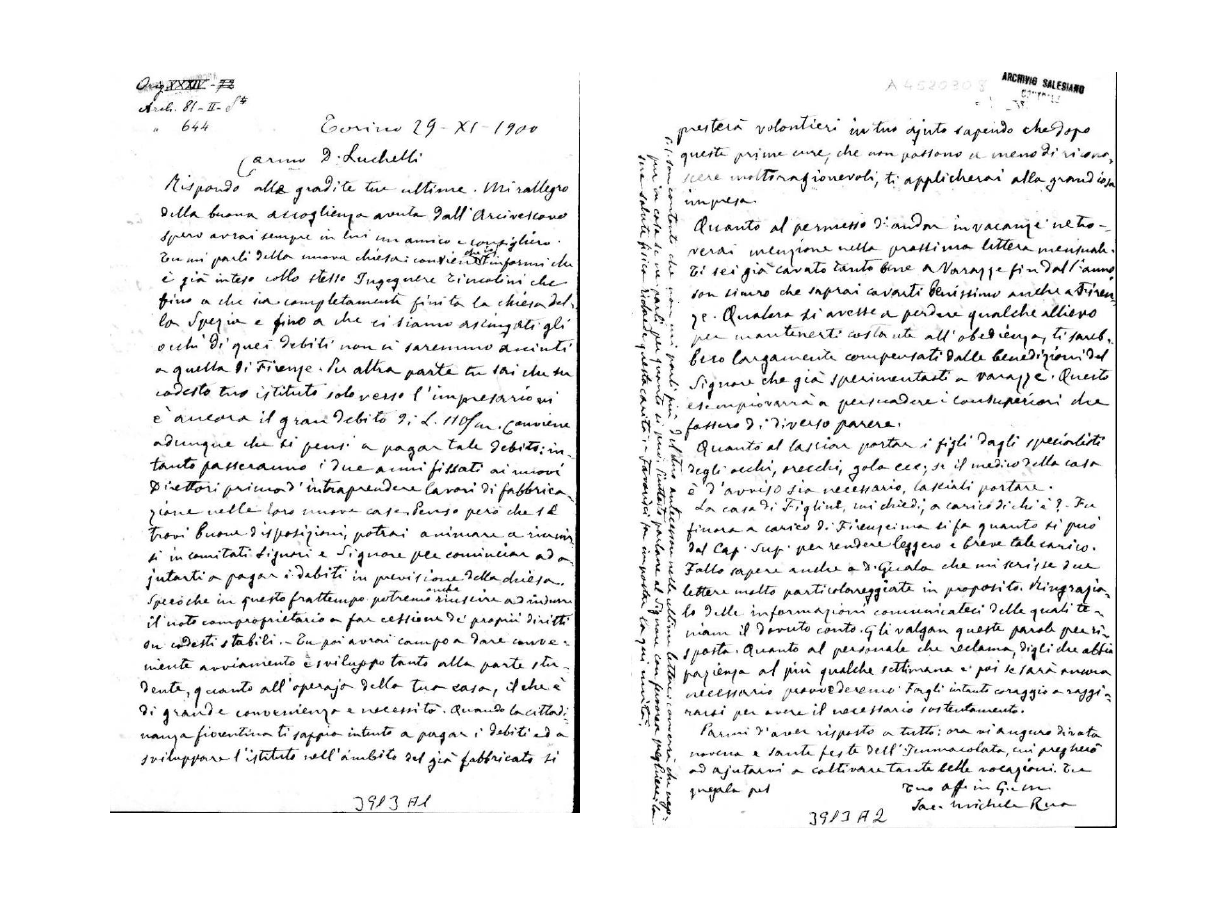 Orig XXXIV - 72
Arch. 81-II-
" 644
Torino 29-XI-1900
Carmo D. Luchelli
Rispondo alle gradite tue ultime. Mi rallegro
della buona accoglienza avuta dall'Arcivescovo
spero avrai sempre in lui un amico e consigliero.
Tu mi parli della nuova chiesa: conviene che t'informi che
è già inteso collo stesso Ingegnere che
fino a che sia completamente finita la chiesa del-
la Spezia e fino a che ci siamo asciugati gli
occhi di quei debiti non ci saremmo accinti
a quella di Firenze. Per altra parte tu sai che su
codesto tuo istituto solo verso l'impresario vi
è ancora il gran debito di L. 110/m. Conviene
adunque che si pensi a pagar tale debito: in-
tanto passeranno i due anni fissati ai nuovi
Direttori prima d'intraprendere lavori di fabbrica-
zione nelle loro nuove case. Penso però che se
trovi buone disposizioni, potrai animare a riunir
si in comitati Signori e Signore per cominciar ad a-
jutarti a pagar i debiti in previsione della chiesa.
Spero che in questo frattempo potremo anche riuscire ad indurre
il noto comproprietario a far cessione dei proprii diritti
su codesti stabili. - Tu poi avrai campo a dare conve-
niente avviamento e sviluppo tanto alla parte stu-
dente, quanto all'operaja della tua casa, il che è
di grande convenienza e necessità. Quando la cittadi-
nanza fiorentina ti sappia intento a pagar i debiti ed a
sviluppare l'istituto nell'ámbito del già fabbricato si
3913 A1
A4520308
ARCHIVIO SALESIANO
CENTRALE
presterà volontieri in tuo ajuto sapendo che dopo
queste prime cure, che non possono a meno di ricono-
scere molto ragionevoli, ti applicherai alla grandiosa
impresa.
Quanto al permesso di andar in vacanze ne tro-
verai menzione nella prossima lettera mensuale.
Ti sei già cavato tanto bene a Varazze fin dall'anno
son sicuro che saprai cavarti benissimo anche a Firen-
ze. Qualora si avesse a perdere qualche allievo
per mantenerti costante all'obedienza, ti sareb-
bero largamente compensati dalle benedizioni del
Signore che già sperimentasti a Varazze. Questo
esempio varrà a persuadere i consuperiori che
fossero di diverso parere.
Quanto al lasciar portar i figli dagli specialisti
degli occhi, orecchi, gola ecc, se il medico della casa
è d'avviso sia necessario, lasciali portare.
La casa di Figline, mi chiedi, a carico di chi è? Fu
finora a carico di Firenze; ma si fa quanto si può
dal Cap. Sup. per rendere leggero e breve tale carico.
Fallo sapere anche a D. che mi scrisse due
lettere molto particolareggiate in proposito. Ringrazia-
lo delle informazioni comunicateci delle quali te-
niam il dovuto conto. Gli valgan queste parole per ri-
sposta. Quanto al personale che reclama, digli che abbia
pazienza al più qualche settimana e poi se sarà ancora
necessario provvederemo. Fagli intanto coraggio a raggi-
rarsi per avere il necessario sostentamento.
Parmi d'aver risposto a tutto: ora vi auguro divota
novena e sante feste dell'Immacolata, cui pregherò
ad ajutarvi a coltivare tante belle vocazioni. Tu
prega pel
Tuo aff. in G. e M.
Sac. Michele Rua
3913 A2
P.S. Son contento che non mi parli più del tuo antecessore nelle ultime lettere;